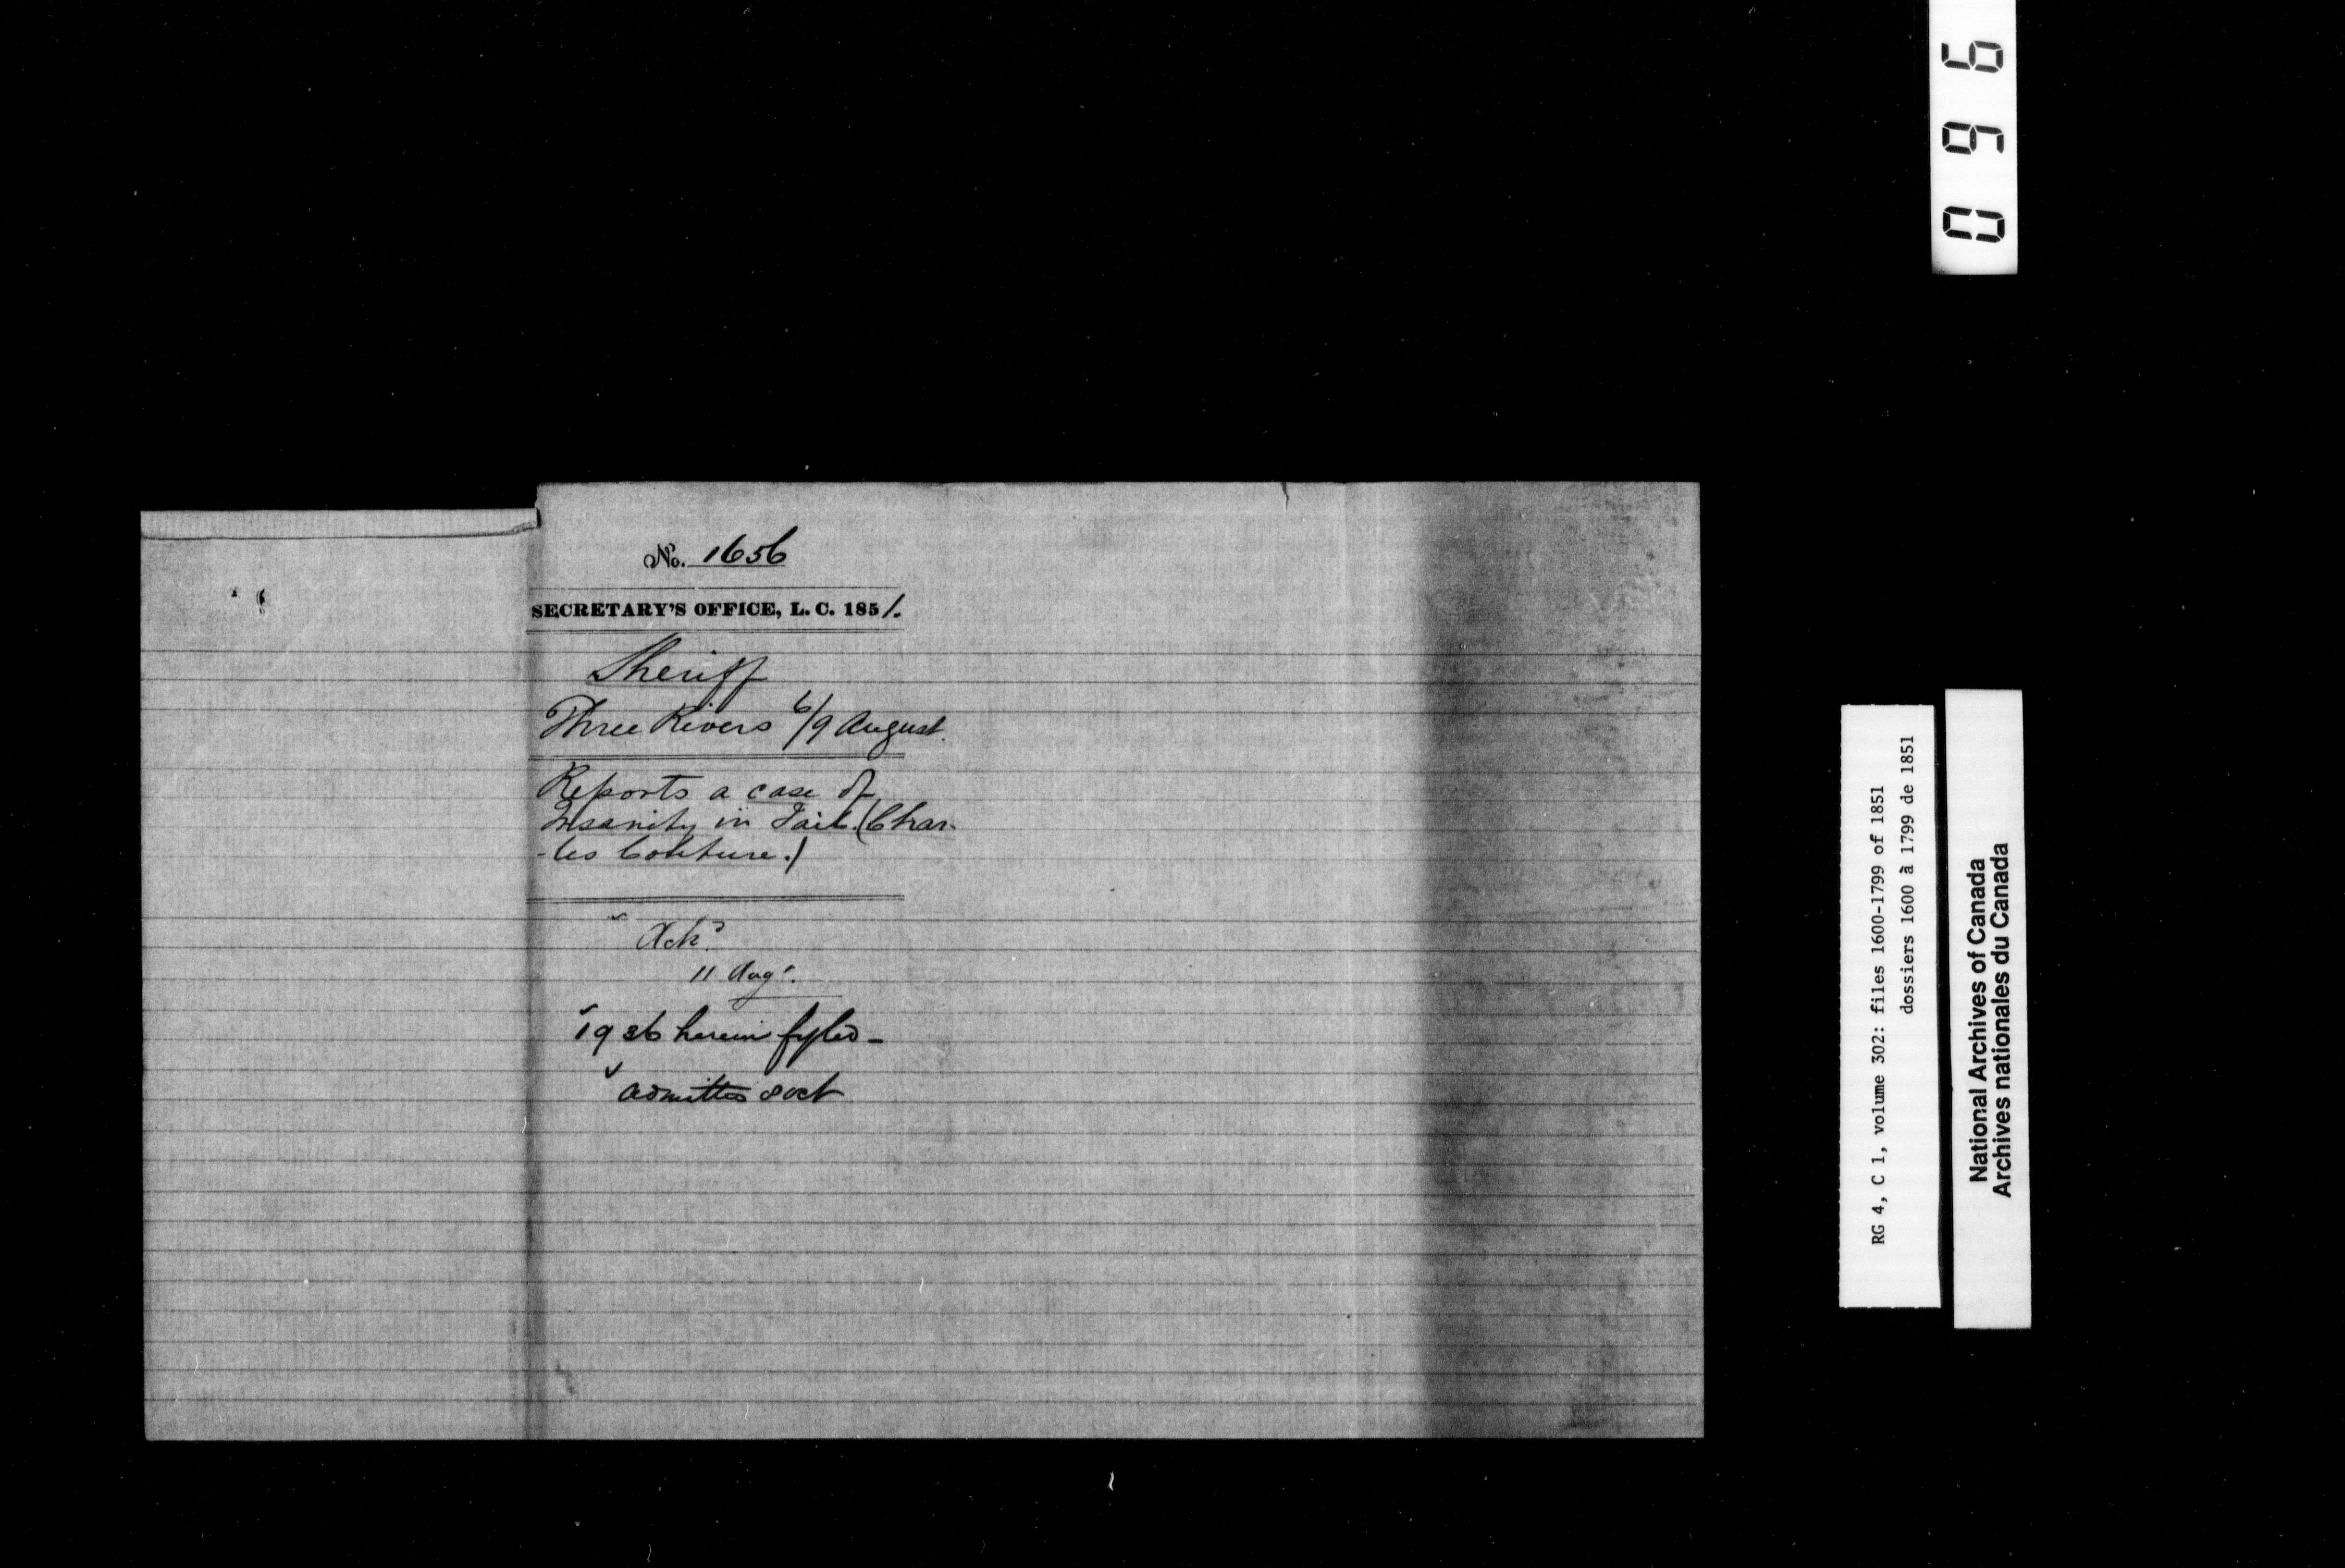 No. 1656
SECRETARY'S OFFICE, L. C. 1851.
Sheriff
Three Rivers 6/9 August.
Reports a case of
Insanity in Jail. (Char-
-les Couture.)
Ackd
11 Augt.
1936 herein fyled -
admitted 8 oct
0 9 6
RG 4, C 1, volume 302: files 1600-1799 of 1851
dossiers 1600 à 1799 de 1851
National Archives of Canada
Archives nationales du Canada